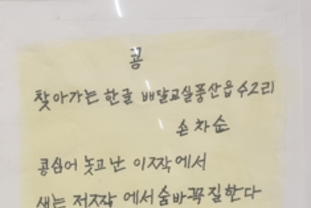 콩
찾아가는 한글 배달교실풍산읍 수2리
손차순
콩심어 놓고 난 이쪽에서
새는 저쪽에서 숨바꼭질한다